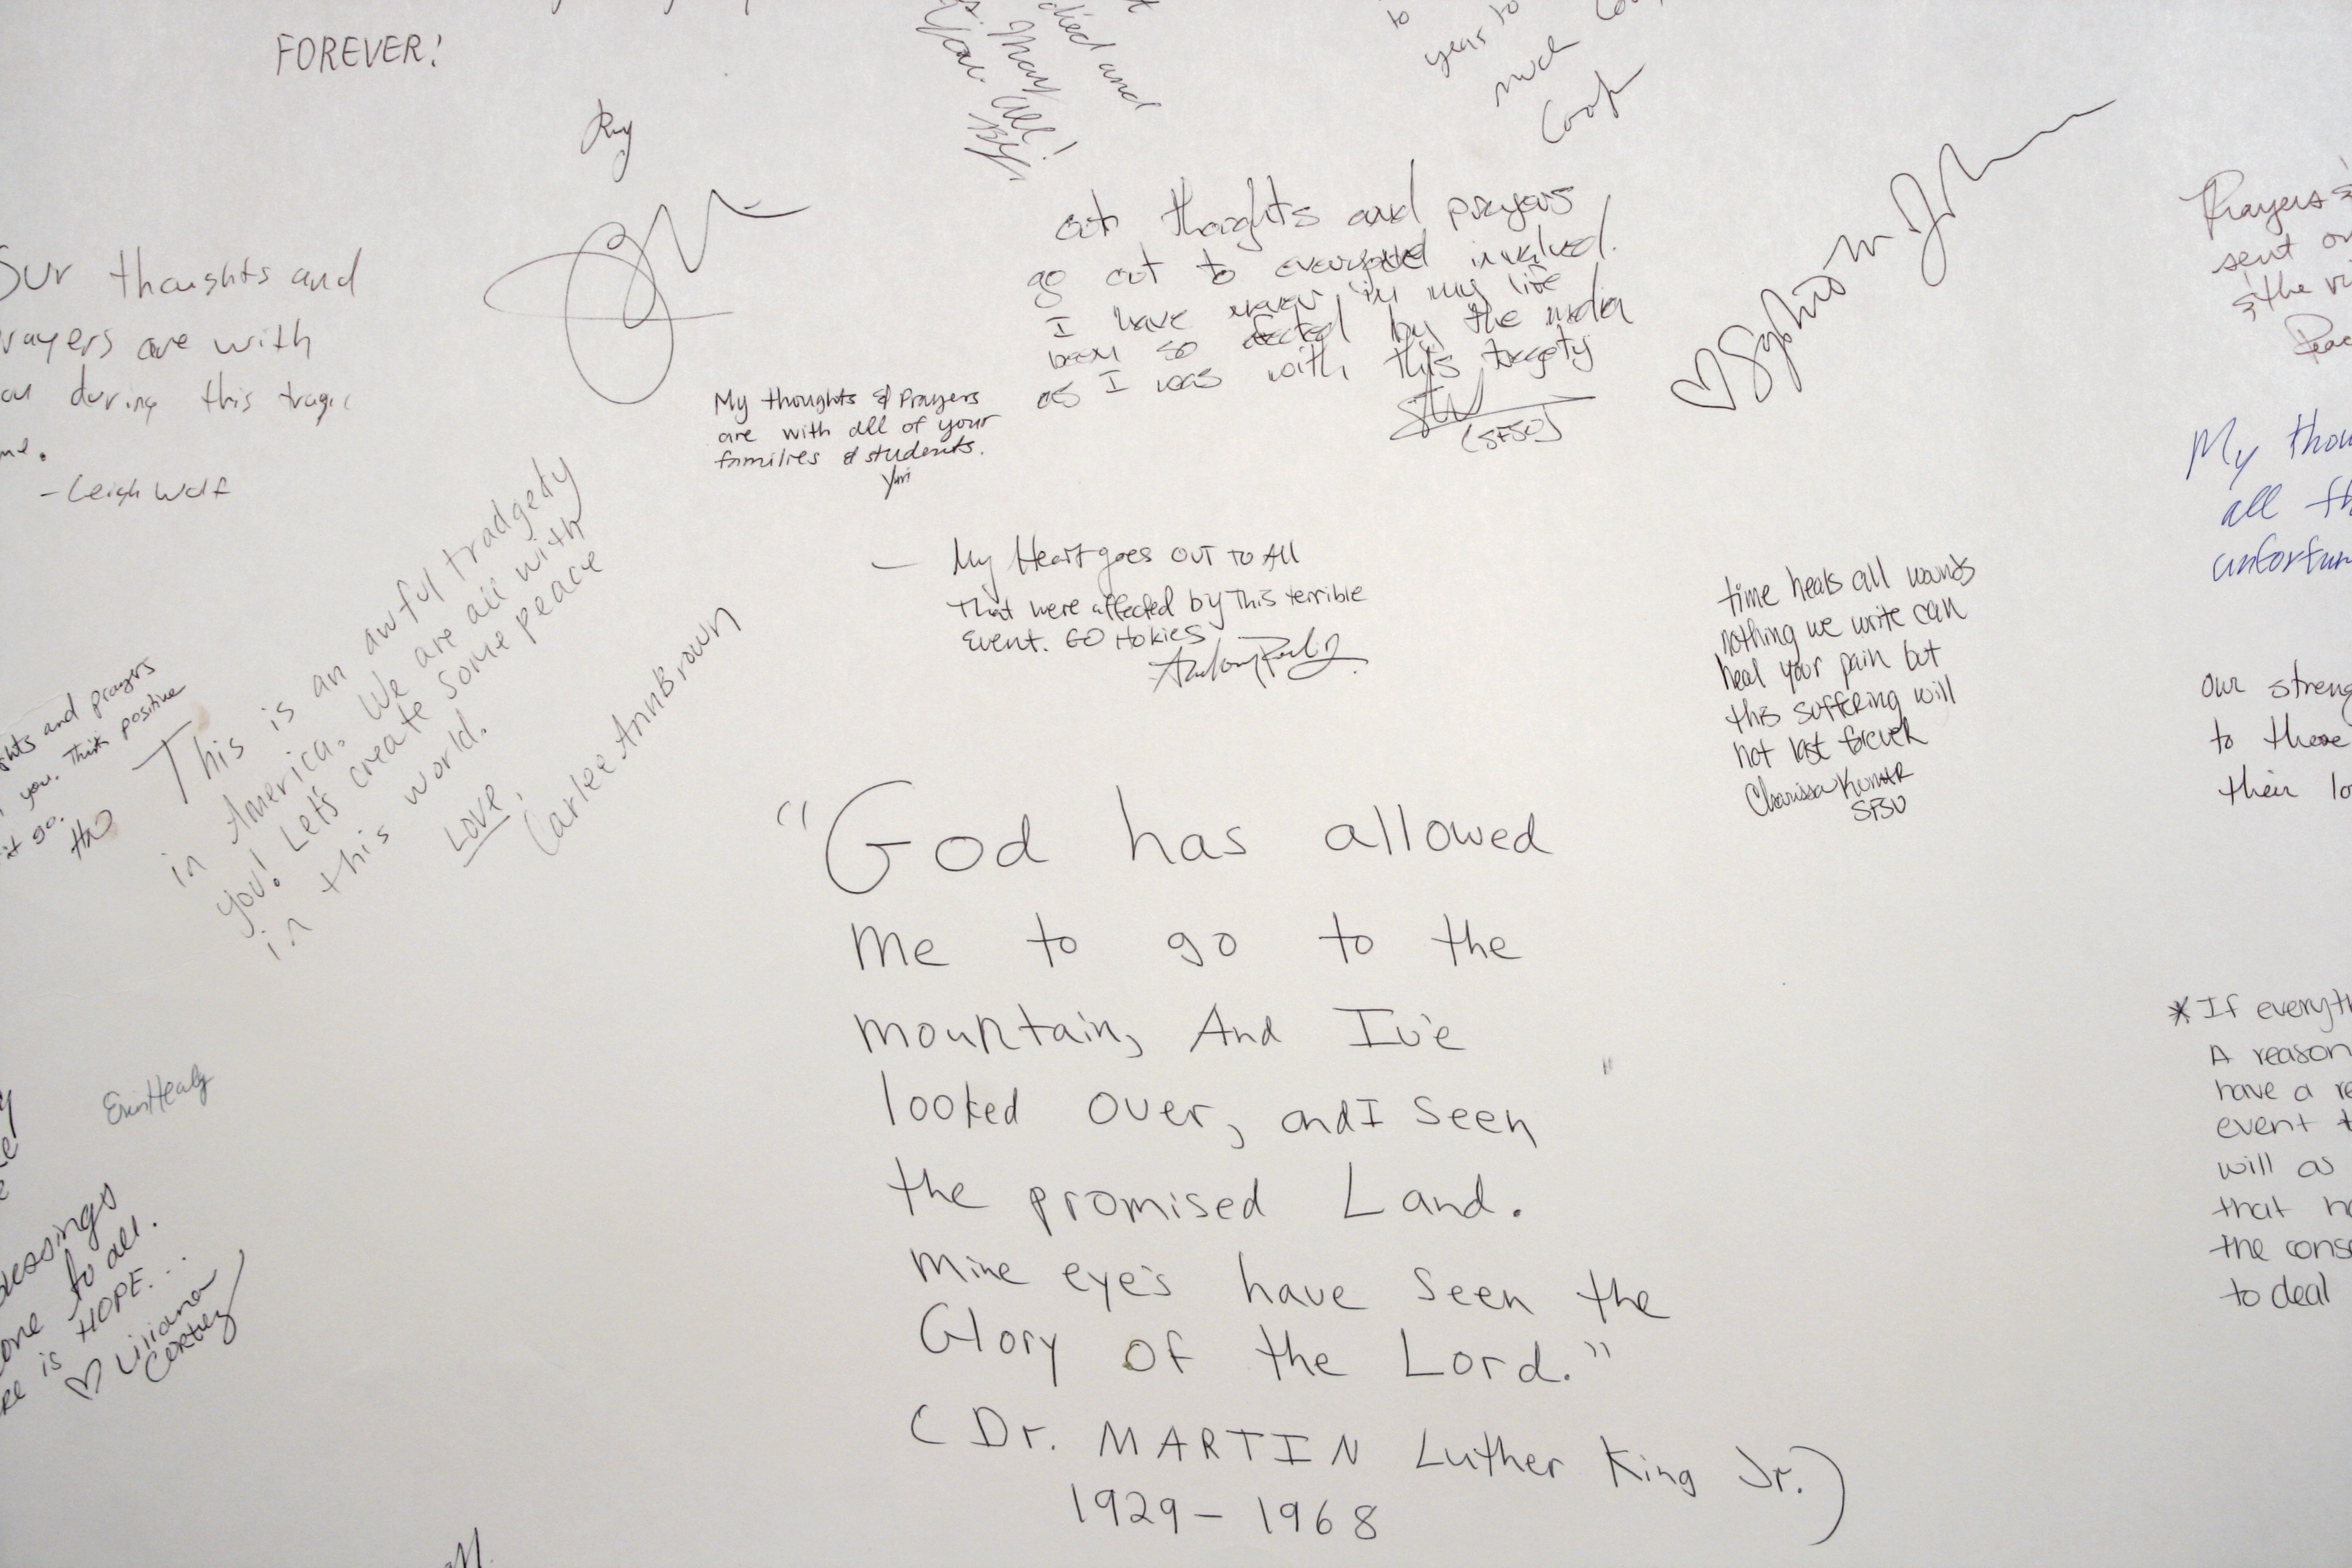 FOREVER!
died and
May
you all!
By.
to
year to
much
Our thoughts and
prayers are with
during this tragic
- Leigh Wolf
My thoughts & Prayers
are with all of your
families & students.
Yuri
out thoughts and prayers
go out to everyone involved.
I have never in my life
been so fected by the media
as I was with this tragety
(SFSU)
Prayers
sent
the
My thou
all th
unfortun
My Heart goes OUT TO All
That were affected by This terrible
Event. GO HOKIES
time heals all wounds
nothing we write can
heal your pain but
this suffering will
not last forever
Charissa
SFSU
our streng
to those
their lo
and prayers
you. Think positive
it go.
This is an awful tradgety
in America. We are all with
you! Let's create some peace
in this world.
Love,
Carlee AnnBrown
"God has allowed
me to go to the
mountain, And Iv'e
looked over, and I seen
the promised Land.
Mine eye's have seen the
Glory of the Lord."
(Dr. MARTIN Luther King Jr.)
1929 - 1968
Erin Healy
blessings
to all.
is HOPE...
♡ Liliana
Cortez
* If everyth
A reason
have a re
event t
will as
that h
the cons
to deal